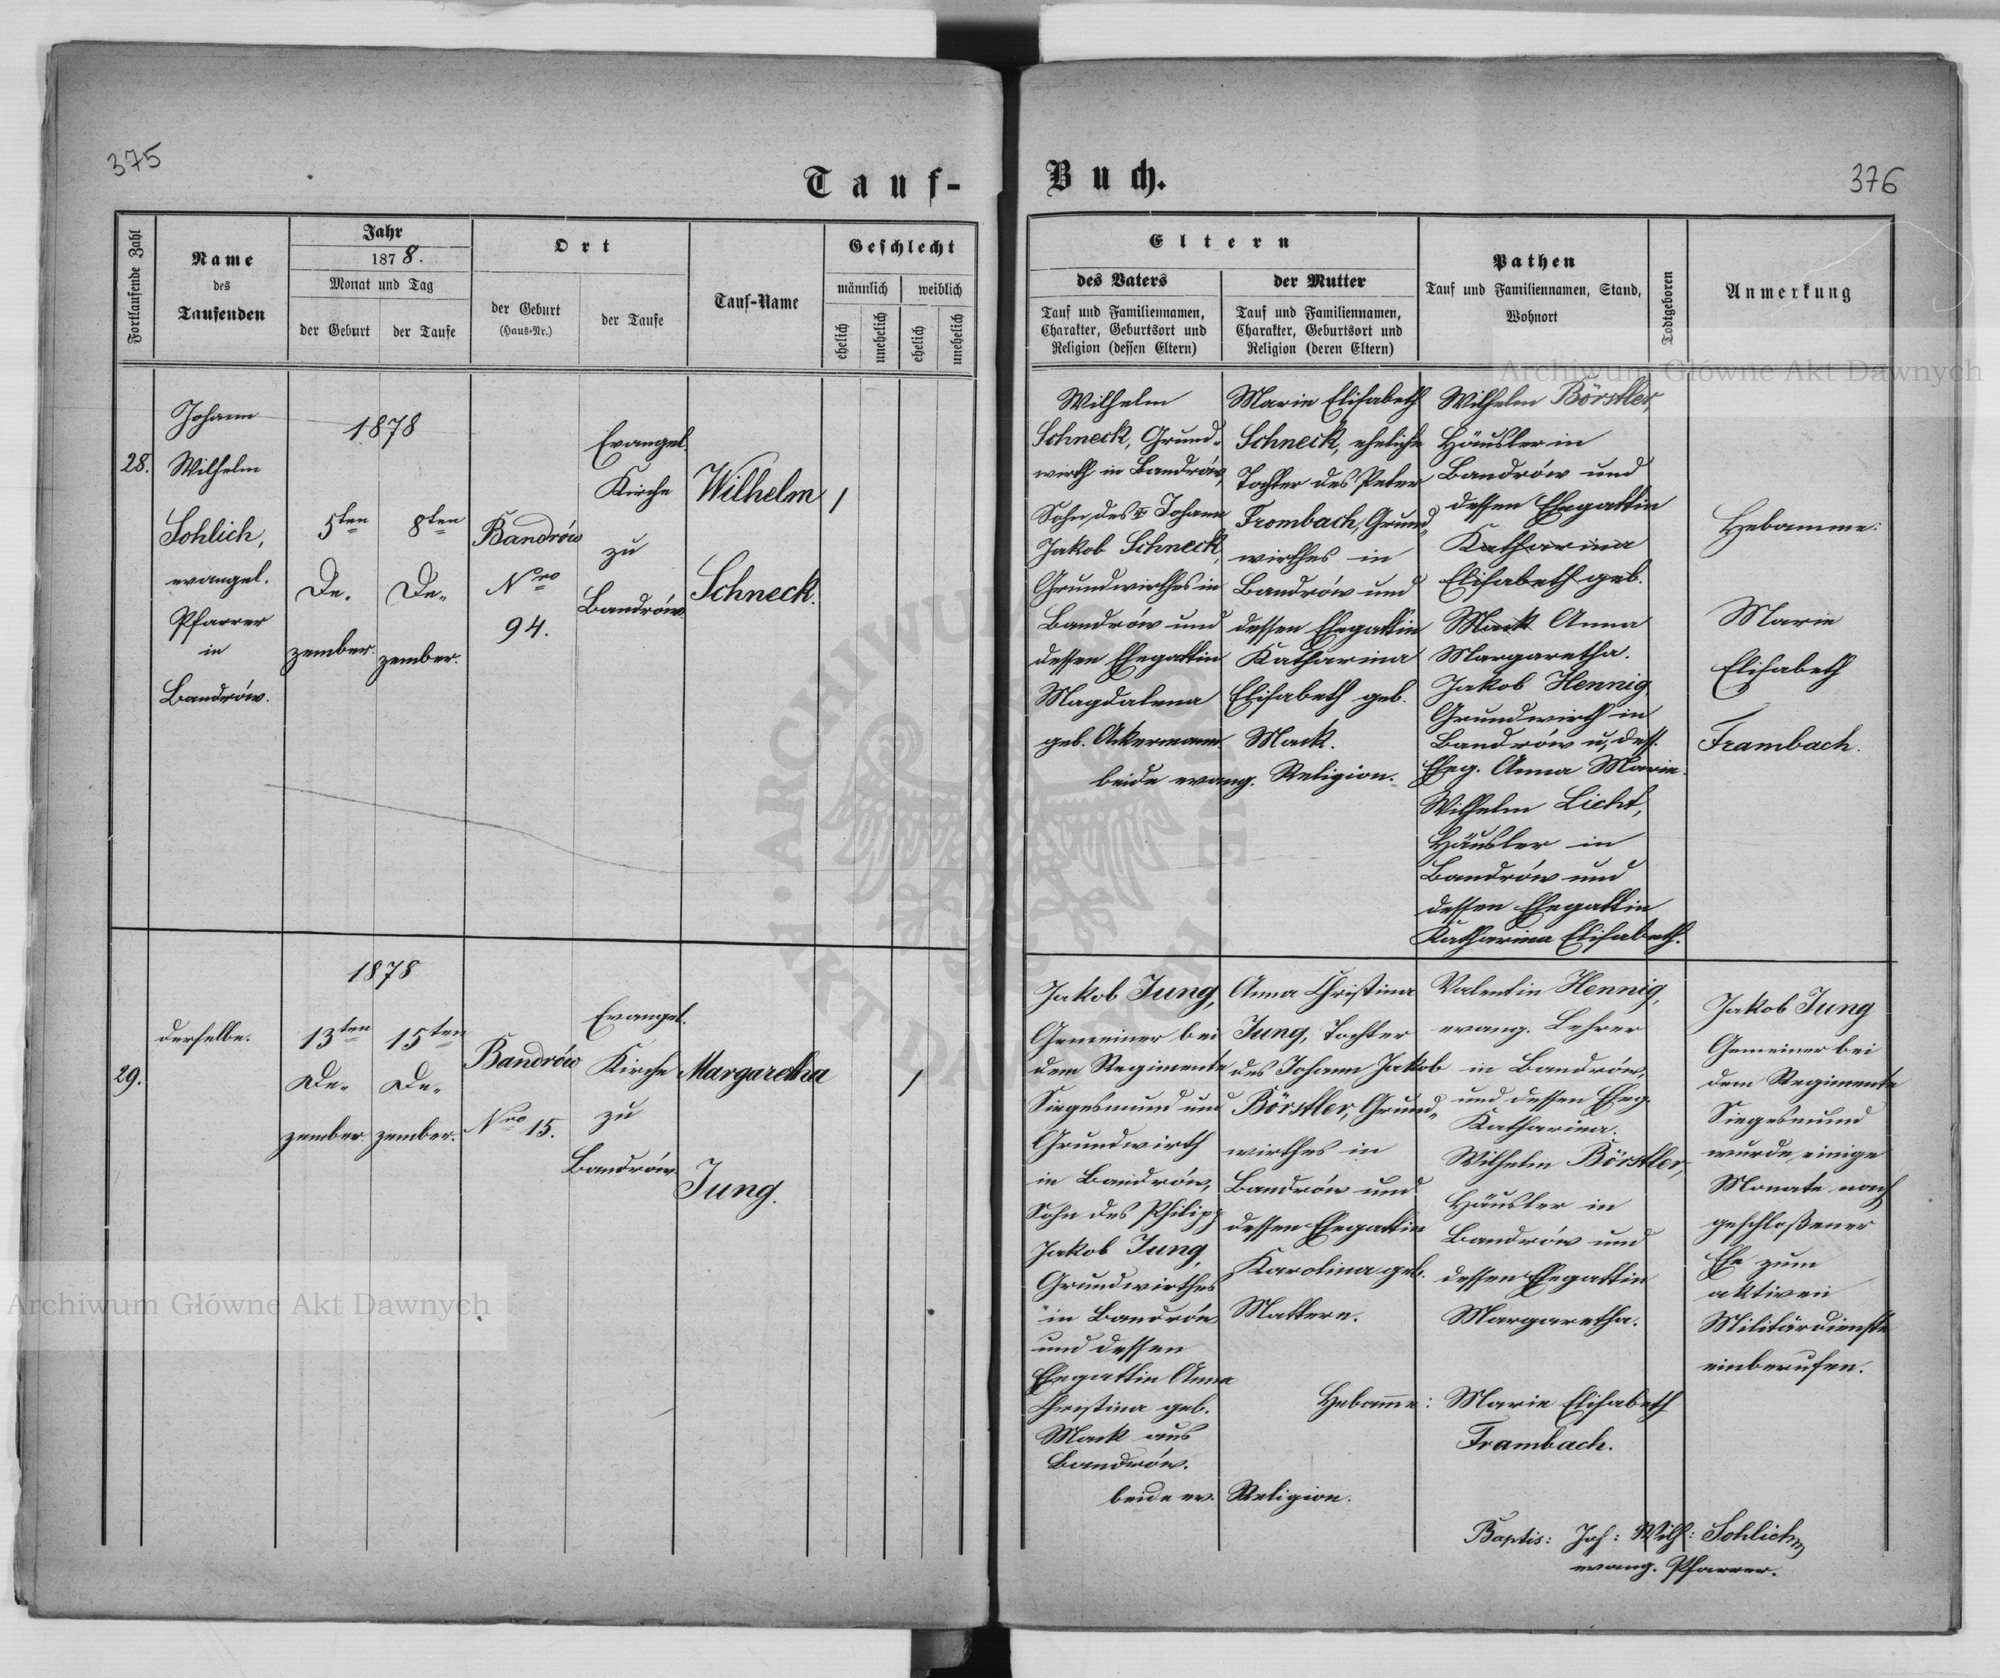 375
Tauf-
Fortlaufende Zahl
Name
des
Taufenden
Jahr
1878.
Monat und Tag
der Geburt
der Taufe
Ort
der Geburt
(Haus-Nr.)
der Taufe
Tauf-Name
Geschlecht
männlich
weiblich
ehelich
unehelich
ehelich
unehelich
28.
Johann
Wilhelm
Sohlich,
evangel.
Pfarrer
in
Bandrów.
1878
5ten
De-
zember.
8ten
De-
zember.
Bandrów
Nro
94.
Evangel.
Kirche
zu
Bandrów.
Wilhelm
Schneck.
/
29.
derselbe.
1878
13ten
De-
zember
15ten
De-
zember.
Bandrów
Nro 15.
Evangel.
Kirche
zu
Bandrów.
Margaretha
Jung.
/
Buch.
376
Eltern
des Vaters
Tauf und Familiennamen,
Charakter, Geburtsort und
Religion (dessen Eltern)
der Mutter
Tauf und Familiennamen,
Charakter, Geburtsort und
Religion (deren Eltern)
Pathen
Tauf und Familiennamen, Stand,
Wohnort
Todtgeboren
Anmerkung
Wilhelm
Schneck, Grund-
wirth in Bandrów,
Sohn des Johann
Jakob Schneck,
Grundwirthes in
Bandrów und
dessen Ehegattin
Magdalena
geb. Ackermann.
Marie Elisabeth
Schneck, eheliche
Tochter des Peter
Frombach, Grund-
wirthes in
Bandrów und
dessen Ehegattin
Katharina
Elisabeth geb.
Mack.
beide evang. Religion.
Wilhelm Börstler,
Häusler in
Bandrów und
dessen Ehegattin
Katharina
Elisabeth geb.
Mack Anna
Margaretha.
Jakob Hennig
Grundwirth in
Bandrów u. dess.
Eheg. Anna Marie.
Wilhelm Licht,
Häusler in
Bandrów und
dessen Ehegattin
Katharina Elisabeth.
Hebamme:
Marie
Elisabeth
Frambach.
Jakob Jung,
Gemeiner bei
dem Regimente
Siegesmund und
Grundwirth
in Bandrów,
Sohn des Philipp
Jakob Jung,
Grundwirthes
in Bandrów
und dessen
Ehegattin Anna
Christina geb.
Mack aus
Bandrów.
Anna Christina
Jung, Tochter
des Johann Jakob
Börstler, Grund-
wirthes in
Bandrów und
dessen Ehegattin
Karolina geb.
Mattern.
beide ev. Religion.
Valentin Hennig,
evang. Lehrer
in Bandrów,
und dessen Eheg.
Katharina.
Wilhelm Börstler,
Häusler in
Bandrów und
dessen Ehegattin
Margaretha.
Hebamme: Marie Elisabeth
Frambach.
Jakob Jung
Gemeiner bei
dem Regimente
Siegesmund
wurde, einige
Monate nach
geschloßener
Ehe zum
aktiven
Militärdienste
einberufen.
Baptis: Joh: Wilh: Sohlich
evang. Pfarrer.
Archiwum Główne Akt Dawnych
Archiwum Główne Akt Dawnych
ARCHIWUM GŁÓWNE AKT DAWNYCH